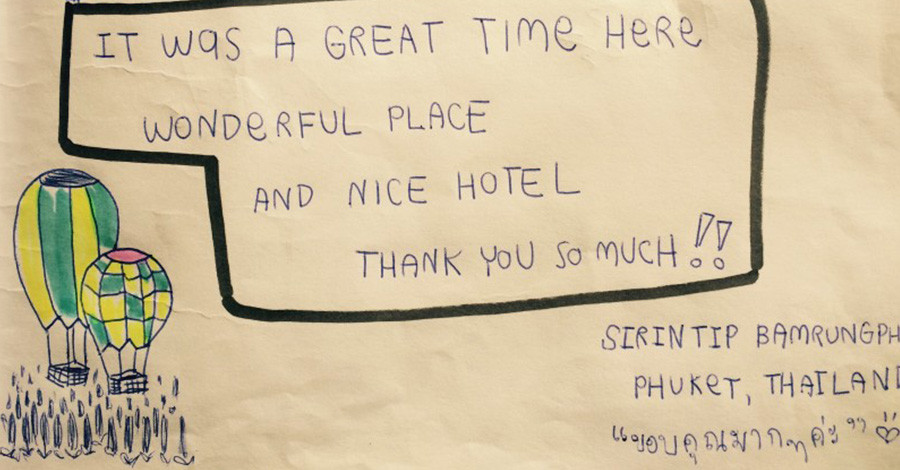 IT WAS A GREAT TIME HERE
WONDERFUL PLACE
AND NICE HOTEL
THANK YOU SO MUCH !!
SIRINTIP BAMRUNGPH
PHUKET, THAILAND
"ขอบคุณมากๆค่ะ"